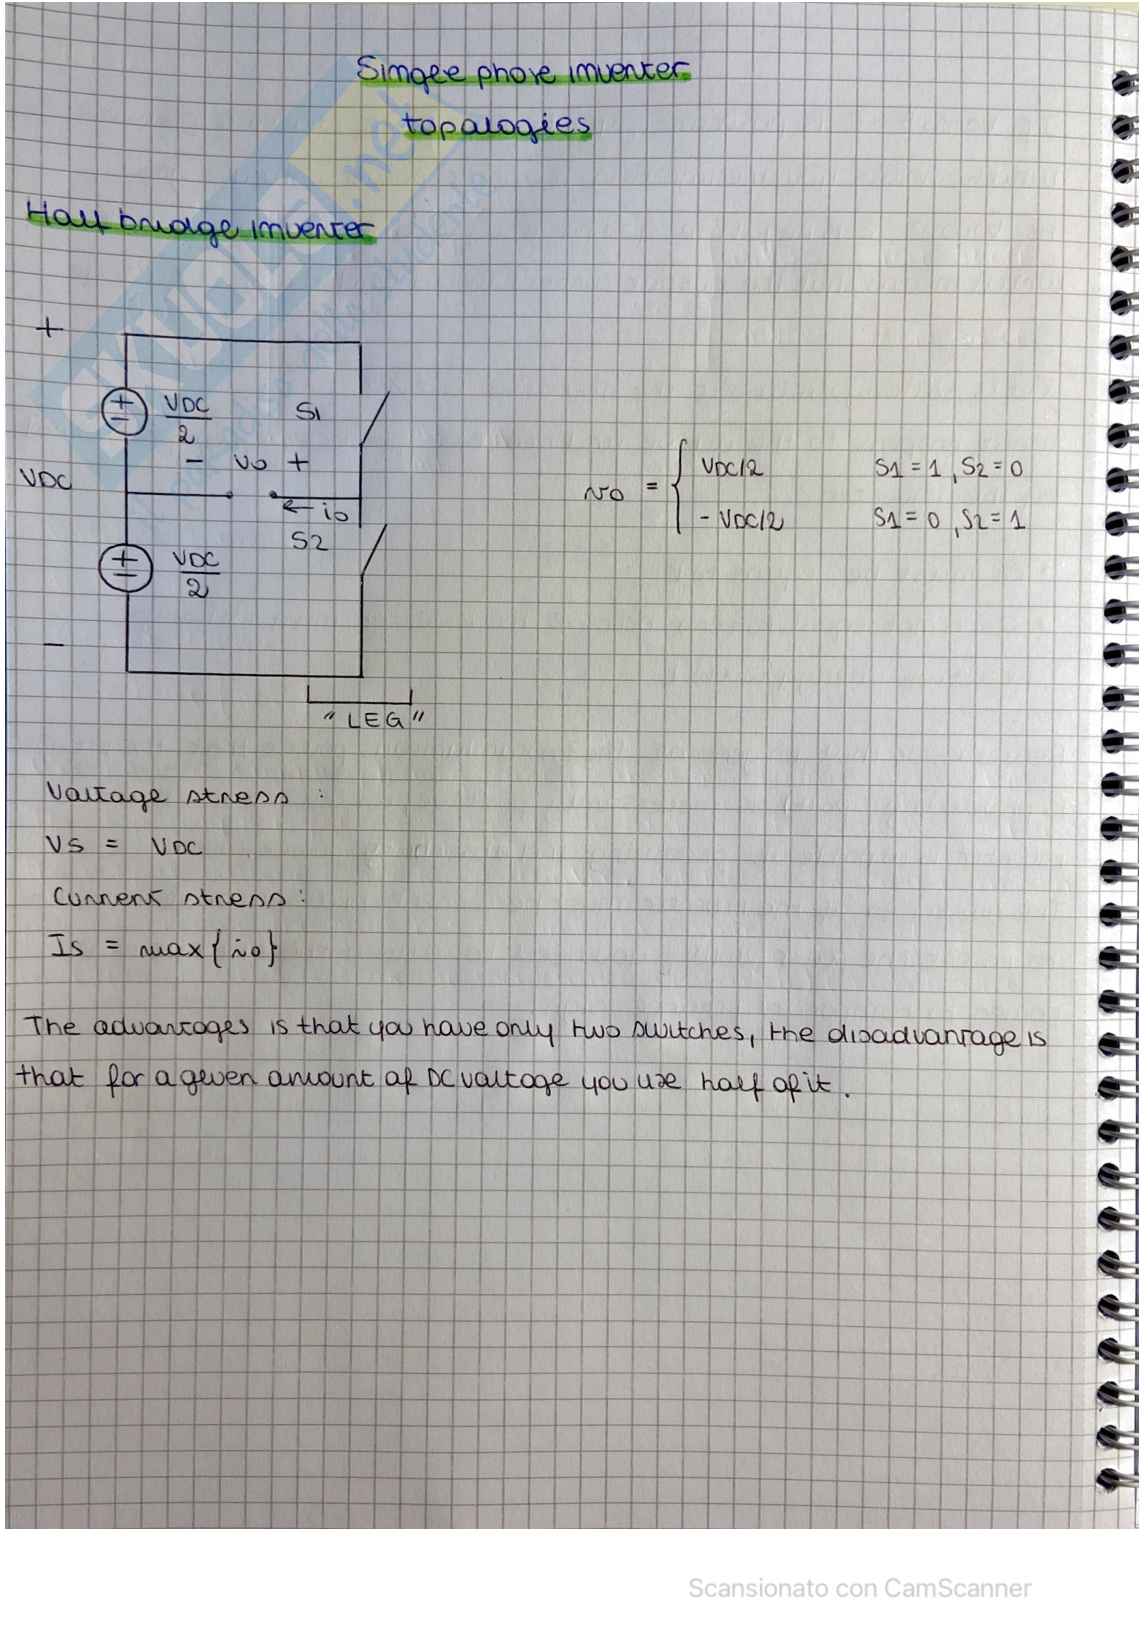 Single phase inverter
topologies
Half bridge inverter
+
VDC
2
S1
- vo +
VDC
vo = { VDC/2 S1 = 1, S2 = 0
- VDC/2 S1 = 0, S2 = 1
← io
S2
VDC
2
-
"LEG"
Voltage stress :
VS = VDC
Current stress :
Is = max{io}
The advantages is that you have only two switches, the disadvantage is
that for a given amount of DC voltage you use half of it.
SKUOLA.net
Scansionato con CamScanner